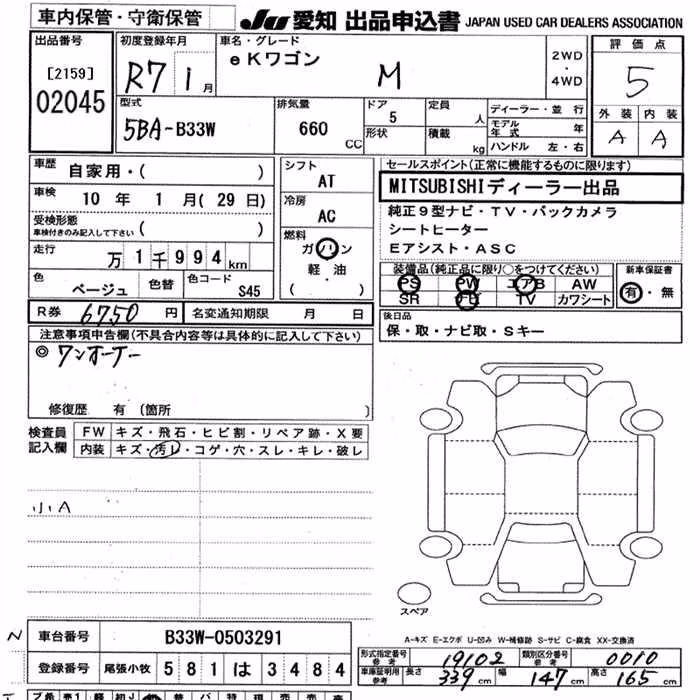 車内保管・守衛保管 JU 愛知 出品申込書 JAPAN USED CAR DEALERS ASSOCIATION
出品番号 [2159] 02045
初度登録年月 R7 1月
車名・グレード eKワゴン M
2WD・4WD
評価点 5
外装 内装
A A
型式 5BA-B33W
排気量 660 CC
ドア 5 形状
定員 人 積載 kg
ディーラー・並行
モデル年式 年
ハンドル 左・右
車歴 自家用・( )
車検 10年 1月(29日)
受検形態 車検付きのみ記入して下さい ( )
走行 万1千994km
色 ベージュ 色替 色コード S45
シフト AT
冷房 AC
燃料 ガソリン 軽油 ( )
セールスポイント(正常に機能するものに限ります)
MITSUBISHIディーラー出品
純正9型ナビ・TV・バックカメラ
シートヒーター
Eアシスト・ASC
装備品(純正品に限り○をつけてください) 新車保証書
PS PW エアB AW 有・無
SR ナビ TV カワシート
R券 6750円 名変通知期限 月 日
後日品
保・取・ナビ取・Sキー
注意事項申告欄(不具合内容等は具体的に記入して下さい)
◎ワンオーナー
修復歴 有(箇所 )
検査員記入欄
FW キズ・飛石・ヒビ割・リペア跡・X要
内装 キズ・汚レ・コゲ・穴・スレ・キレ・破レ
小A
スペア
A-キズ E-エクボ U-凹み W-補修跡 S-サビ C-腐食 XX-交換済
N 車台番号 B33W-0503291
登録番号 尾張小牧 581は3484
形式指定番号 参考 19102 類別区分番号 参考 0010
車庫証明用 参考 長さ 339cm 幅 147cm 高さ 165cm